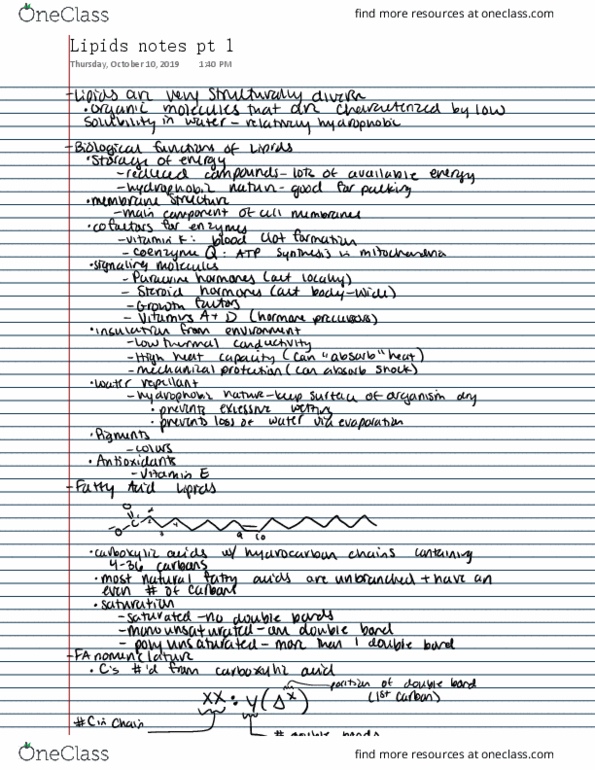 OneClass
find more resources at oneclass.com
Lipids notes pt 1
Thursday, October 10, 2019 1:40 PM
-Lipids are very structurally diverse
•organic molecules that are characterized by low
solubility in water - relatively hydrophobic
-Biological functions of Lipids
•Storage of energy
-reduced compounds - lots of available energy
-hydrophobic nature - good for packing
•membrane structure
-main component of cell membranes
•cofactors for enzymes
-vitamin K: blood clot formation
-coenzyme Q: ATP synthesis in mitochondria
•signaling molecules
-Paracrine hormones (act locally)
-Steroid hormones (act body-wide)
-Growth factors
-Vitamins A + D (hormone precursors)
•insulation from environment
-Low thermal conductivity
-High heat capacity (can "absorb" heat)
-mechanical protection (can absorb shock)
•water repellant
-hydrophobic nature - keep surface of organism dry
•prevents excessive wetting
•prevents loss of water via evaporation
•Pigments
-colors
•Antioxidants
-vitamin E
-Fatty Acid Lipids
O
-O C 1 2 3 4 9 10
•carboxylic acids w/ hydrocarbon chains containing
4-36 carbons
•most natural fatty acids are unbranched + have an
even # of carbons
•saturation
-saturated - no double bonds
-monounsaturated - one double bond
-polyunsaturated - more than 1 double bond
-FA nomenclature
•C's #'d from carboxylic acid
position of double bond
(1st carbon)
XX:Y(Δˣ)
#C in chain
# double bonds
OneClass
find more resources at oneclass.com